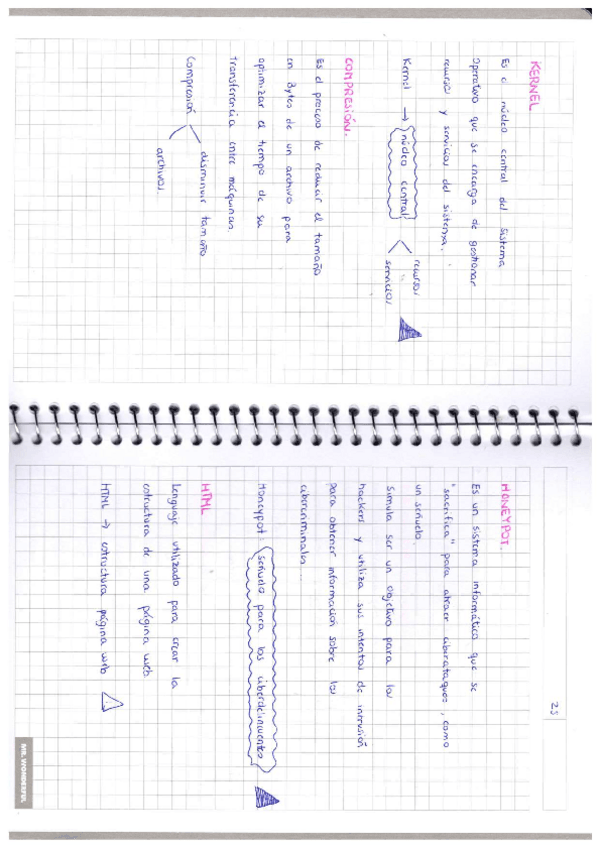 KERNEL
Es el núcleo central del sistema
Operativo que se encarga de gestionar
recursos y servicios del sistema.
Kernel → núcleo central
recursos
servicios
COMPRESIÓN.
Es el proceso de reducir el tamaño
en Bytes de un archivo para
optimizar el tiempo de su
Transferencia entre máquinas.
Compresión
disminuir tamaño
archivos.
25
HONEYPOT.
Es un sistema informático que se
"sacrifica" para atraer ciberataques, como
un señuelo.
Simula ser un objetivo para los
hackers y utiliza sus intentos de intrusión
para obtener información sobre los
cibercriminales...
Honeypot señuelo para los ciberdelincuentes
HTML
Lenguaje utilizado para crear la
estructura de una página web.
HTML → estructura página web
MR. WONDERFUL